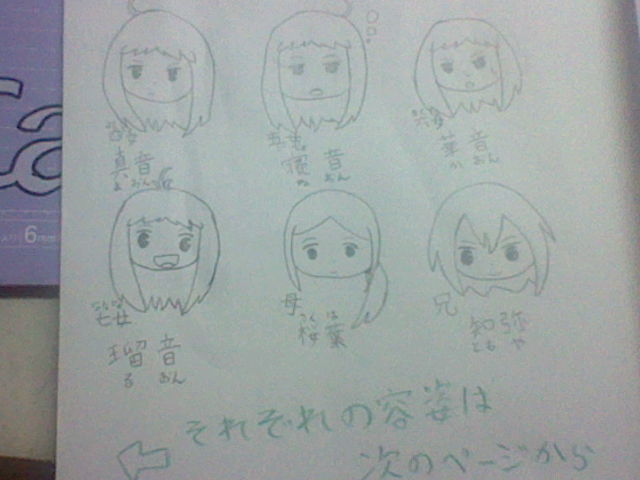 真音
まおん
五女
寝音
ねおん
六女
華音
かおん
七女
ななな
瑠音
るおん
母
桜葉
さくは
兄
知弥
ともや
それぞれの容姿は
次のページから
6mm